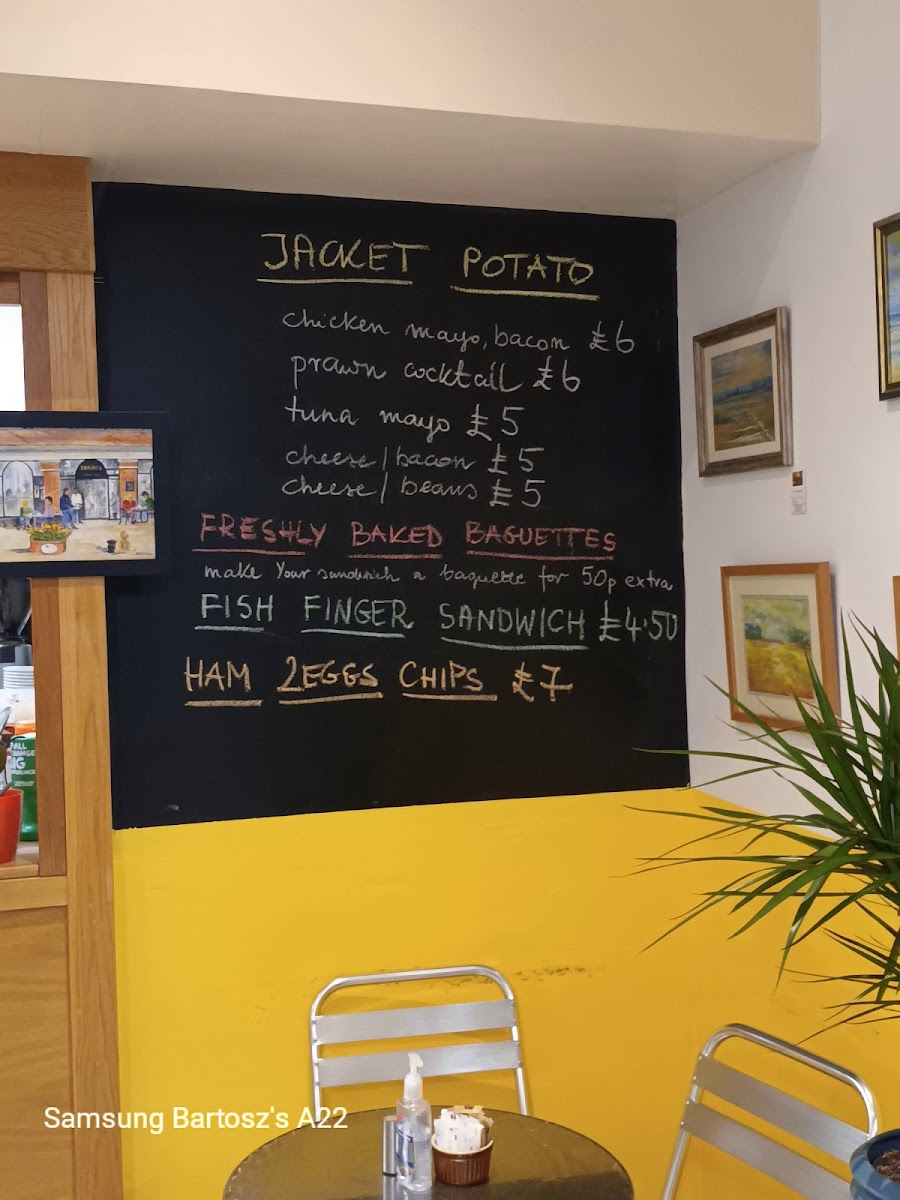 JACKET POTATO
chicken mayo, bacon £6
prawn cocktail £6
tuna mayo £5
cheese/bacon £5
cheese/beans £5
FRESHLY BAKED BAGUETTES
make your sandwich a baguette for 50p extra
FISH FINGER SANDWICH £4.50
HAM 2EGGS CHIPS £7
Samsung Bartosz's A22